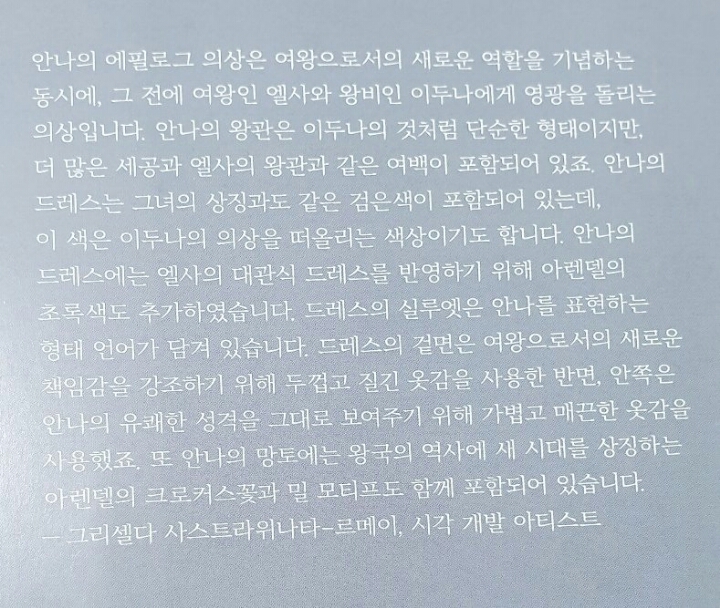 안나의 에필로그 의상은 여왕으로서의 새로운 역할을 기념하는
동시에, 그 전에 여왕인 엘사와 왕비인 이두나에게 영광을 돌리는
의상입니다. 안나의 왕관은 이두나의 것처럼 단순한 형태이지만,
더 많은 세공과 엘사의 왕관과 같은 여백이 포함되어 있죠. 안나의
드레스는 그녀의 상징과도 같은 검은색이 포함되어 있는데,
이 색은 이두나의 의상을 떠올리는 색상이기도 합니다. 안나의
드레스에는 엘사의 대관식 드레스를 반영하기 위해 아렌델의
초록색도 추가하였습니다. 드레스의 실루엣은 안나를 표현하는
형태 언어가 담겨 있습니다. 드레스의 겉면은 여왕으로서의 새로운
책임감을 강조하기 위해 두껍고 질긴 옷감을 사용한 반면, 안쪽은
안나의 유쾌한 성격을 그대로 보여주기 위해 가볍고 매끈한 옷감을
사용했죠. 또 안나의 망토에는 왕국의 역사에 새 시대를 상징하는
아렌델의 크로커스꽃과 밀 모티프도 함께 포함되어 있습니다.
– 그리셀다 사스트라위나타-르메이, 시각 개발 아티스트